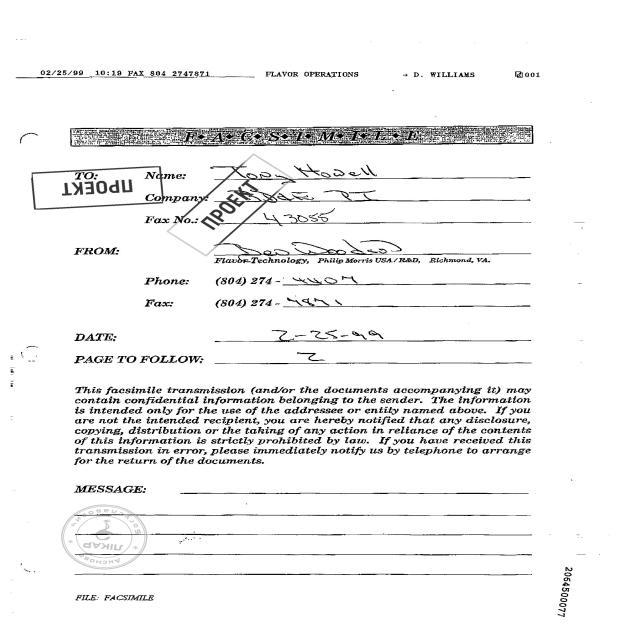 02/25/99 10:19 FAX 804 2747871 FLAVOR OPERATIONS → D. WILLIAMS 001
F•A•C•S•I•M•I•L•E
TO: Name: Tony Howell
ПРОЕКТ
Company: PI
ПРОЕКТ
Fax No.: 43055
FROM:
Flavor Technology, Philip Morris USA/R&D, Richmond, VA.
Phone: (804) 274 - 4407
Fax: (804) 274 - 7871
DATE: 2-25-99
PAGE TO FOLLOW: 2
This facsimile transmission (and/or the documents accompanying it) may
contain confidential information belonging to the sender. The information
is intended only for the use of the addressee or entity named above. If you
are not the intended recipient, you are hereby notified that any disclosure,
copying, distribution or the taking of any action in reliance of the contents
of this information is strictly prohibited by law. If you have received this
transmission in error, please immediately notify us by telephone to arrange
for the return of the documents.
MESSAGE:
ЛІКАР
FILE: FACSIMILE
2064500077